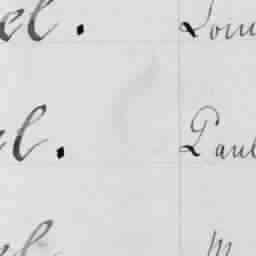 el. Loui
el. Paul
el M